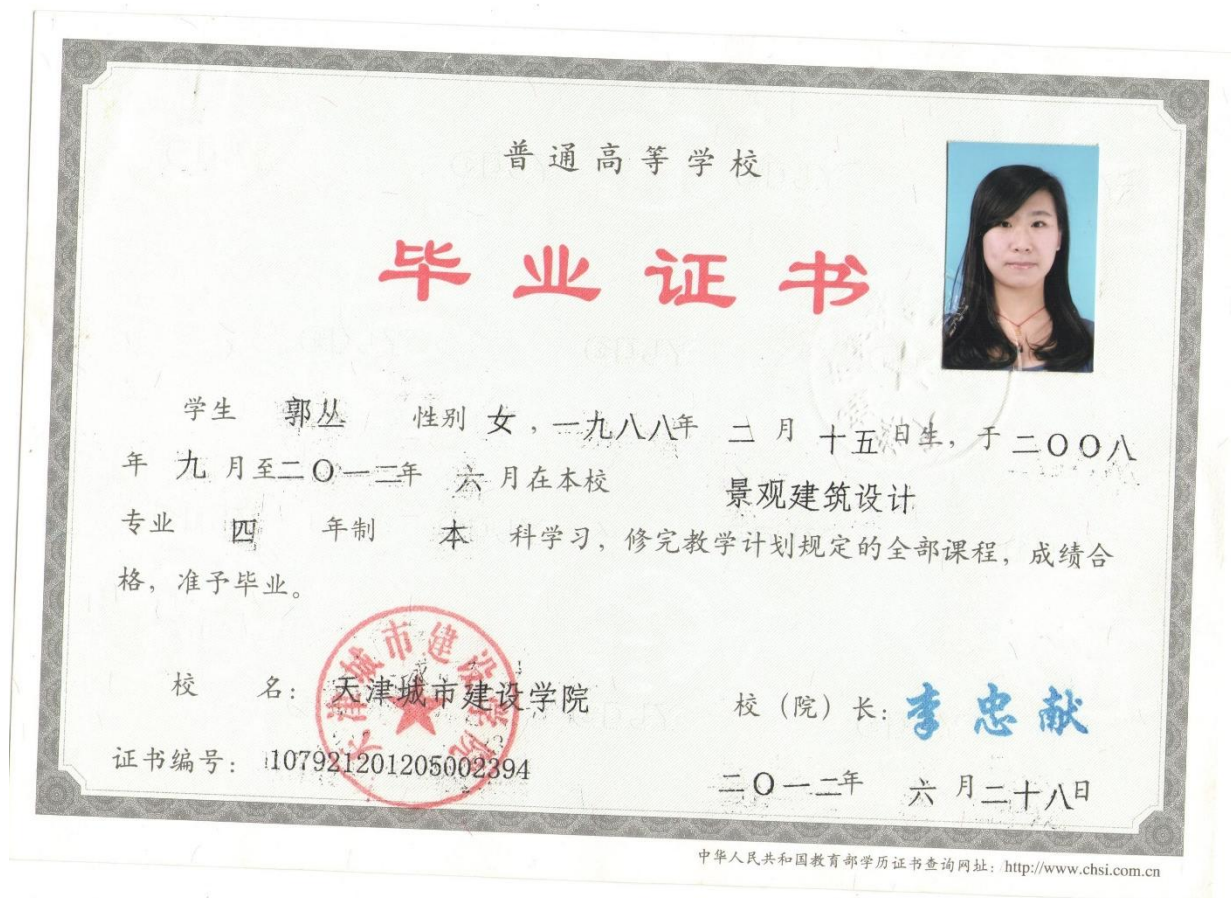 普通高等学校
毕业证书
学生 郭丛 性别 女，一九八八年 二月 十五日生，于二〇〇八
年 九 月至二〇一二年 六 月在本校 景观建筑设计
专业 四 年制 本 科学习，修完教学计划规定的全部课程，成绩合
格，准予毕业。
天津城市建设学院
校 名：天津城市建设学院 校（院）长：李忠献
证书编号：107921201205002394 二〇一二年 六 月二十八日
中华人民共和国教育部学历证书查询网址：http://www.chsi.com.cn